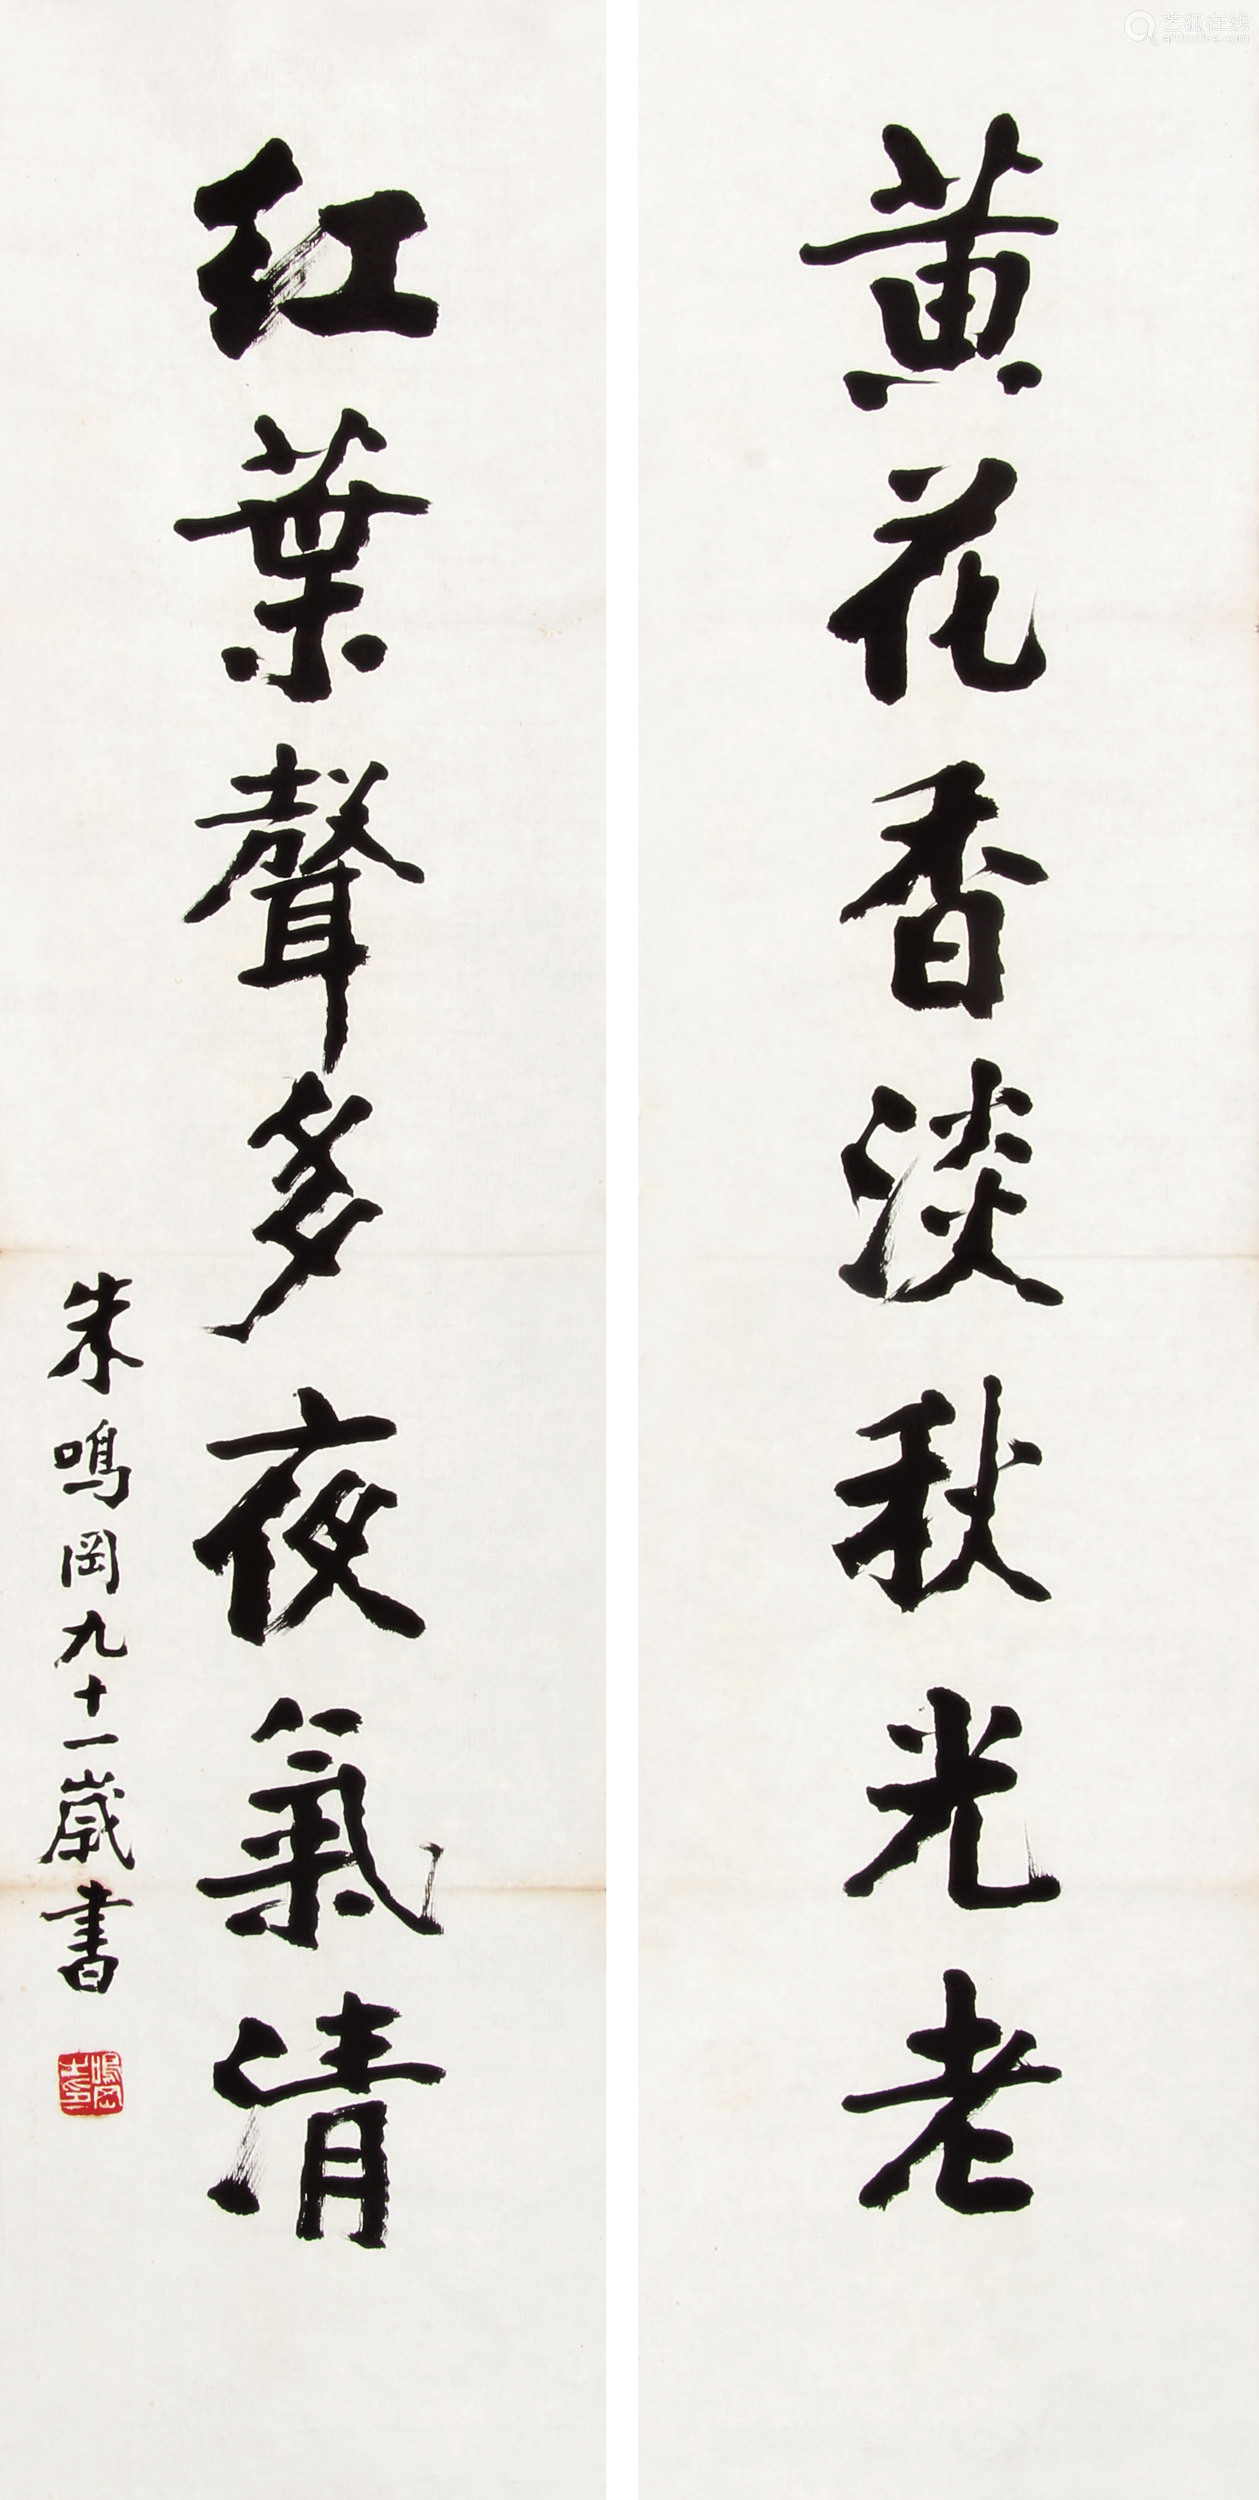 黄花香淡秋光老
紅葉聲多夜氣清
朱鳴岡九十一歲書
鳴岡
艺狐在线
artfoxlive.com